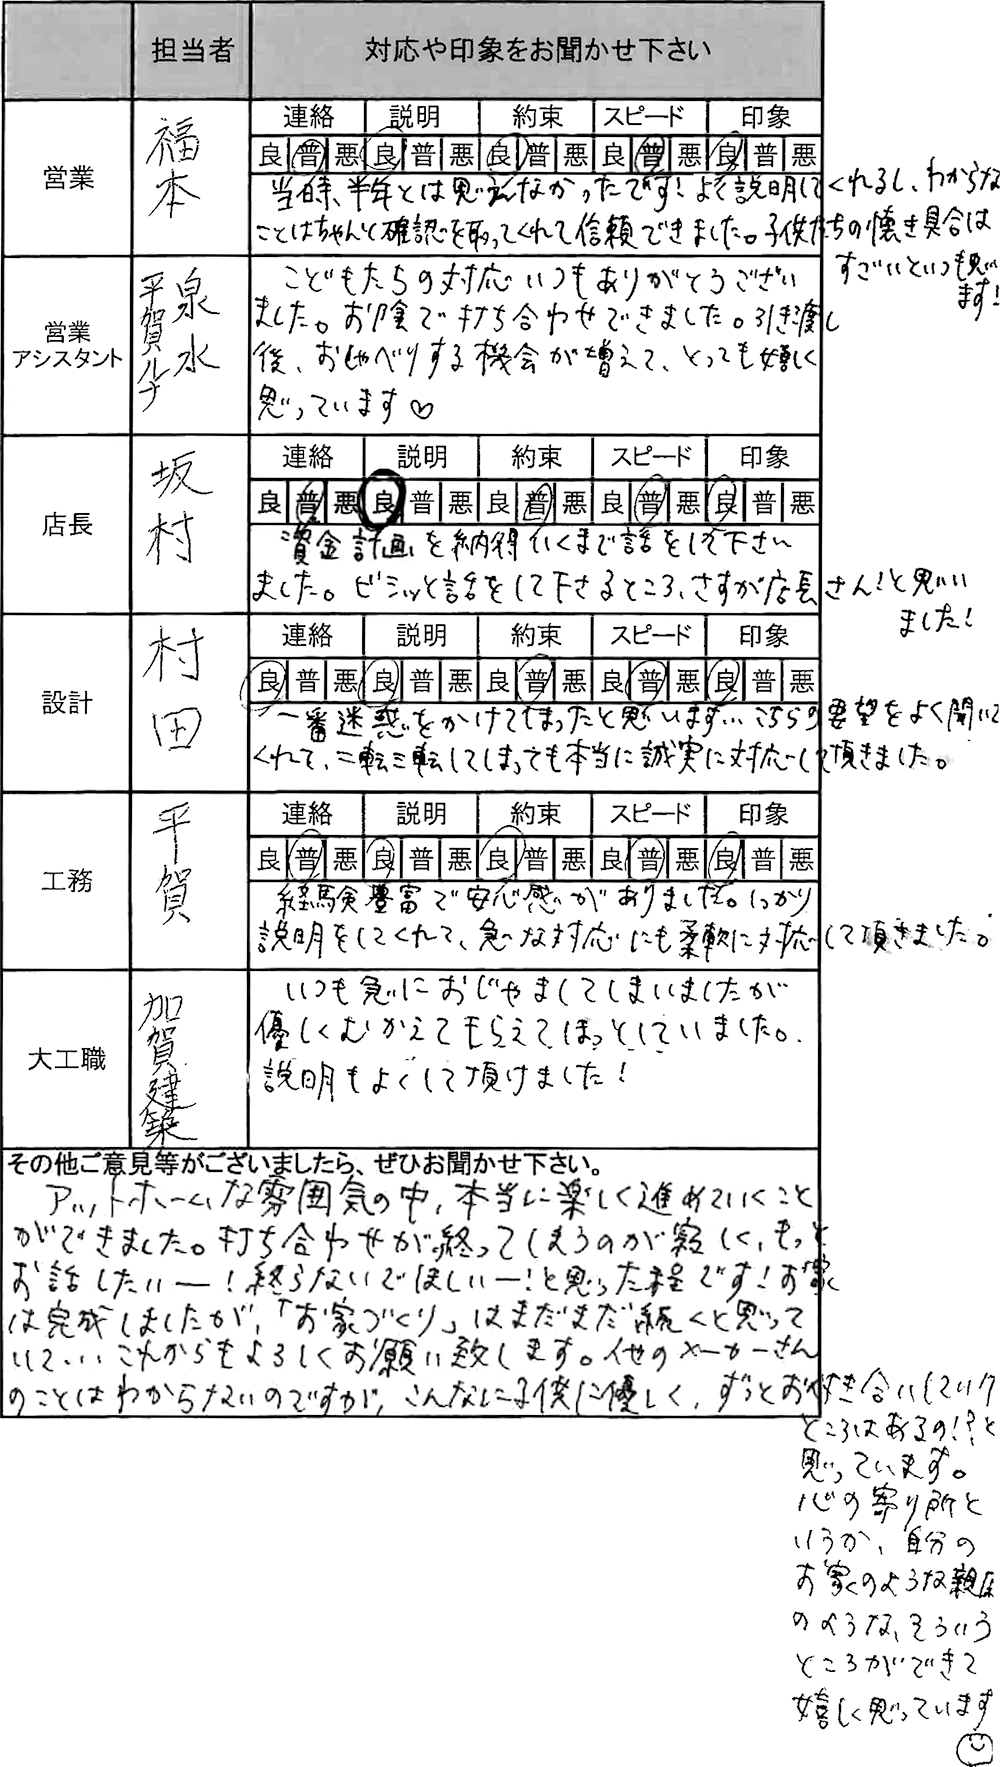 担当者 対応や印象をお聞かせ下さい
営業 福本
連絡 説明 約束 スピード 印象
良 普 悪 良 普 悪 良 普 悪 良 普 悪 良 普 悪
当時、半年とは思えなかったです!よく説明してくれるし、わからな
ことはちゃんと確認を取ってくれて信頼できました。子供たちの懐き具合は
すごいといつも思い
ます!
営業
アシスタント
泉水
平賀ルナ
こどもたちの対応いつもありがとうござい
ました。お陰で打ち合わせできました。引き渡し
後、おしゃべりする機会が増えて、とっても嬉しく
思っています♡
店長 坂村
連絡 説明 約束 スピード 印象
良 普 悪 良 普 悪 良 普 悪 良 普 悪 良 普 悪
資金計画を納得いくまで話をして下さい
ました。ビシッと話をして下さるところ、さすが店長さん!と思い
ました!
設計 村田
連絡 説明 約束 スピード 印象
良 普 悪 良 普 悪 良 普 悪 良 普 悪 良 普 悪
一番迷惑をかけてしまったと思います… こちらの要望をよく聞いて
くれて、二転三転してしまっても本当に誠実に対応して頂きました。
工務 平賀
連絡 説明 約束 スピード 印象
良 普 悪 良 普 悪 良 普 悪 良 普 悪 良 普 悪
経験豊富で安心感がありました。しっかり
説明をしてくれて、急な対応にも柔軟に対応して頂きました。
大工職 加賀建築
いつも急におじゃましてしまいましたが
優しくむかえてもらえてほっとしていました。
説明もよくして頂けました!
その他ご意見等がございましたら、ぜひお聞かせ下さい。
アットホームな雰囲気の中、本当に楽しく進めていくこと
ができました。打ち合わせが終ってしまうのが寂しく、もっと
お話したいー!終らないでほしいー!と思った程です!お家
は完成しましたが、「お家づくり」はまだまだ続くと思って
いて… これからもよろしくお願い致します。他のメーカーさん
のことはわからないのですが、こんなに子供に優しく、ずっとお付き合いしていけ
ところはあるの!?と
思っています。
心の寄り所と
いうか、自分の
お家のような親戚
のような、そういう
ところができて
嬉しく思っています